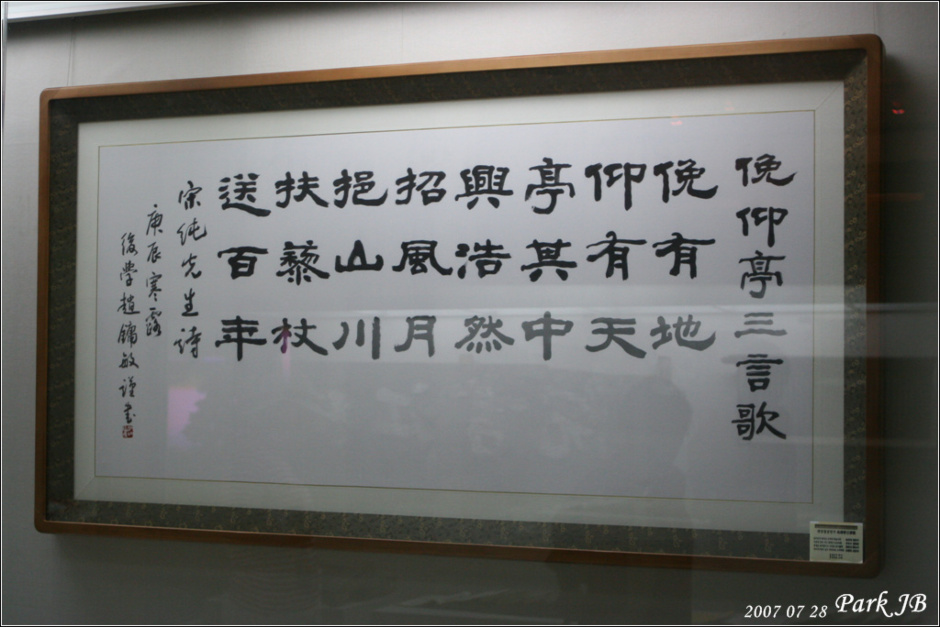 俛仰亭三言歌
俛有地
仰有天
亭其中
興浩然
招風月
挹山川
扶藜杖
送百年
宋純先生詩
庚辰寒露
後學趙鏞敏謹書
2007 07 28 Park JB